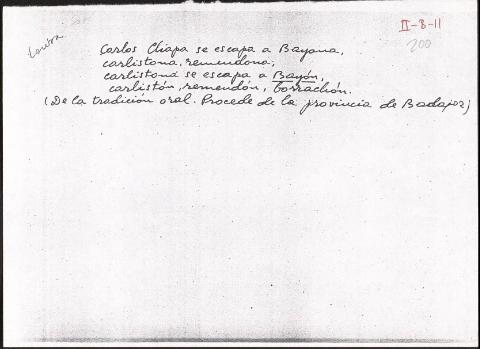 II-8-11
200
Carlos Chapa se escapa a Bayona,
carlistona, remendona,
carlistona se escapa a Bayón,
carlistón, remendón, borrachón.
(De la tradición oral. Procede de la provincia de Badajoz)